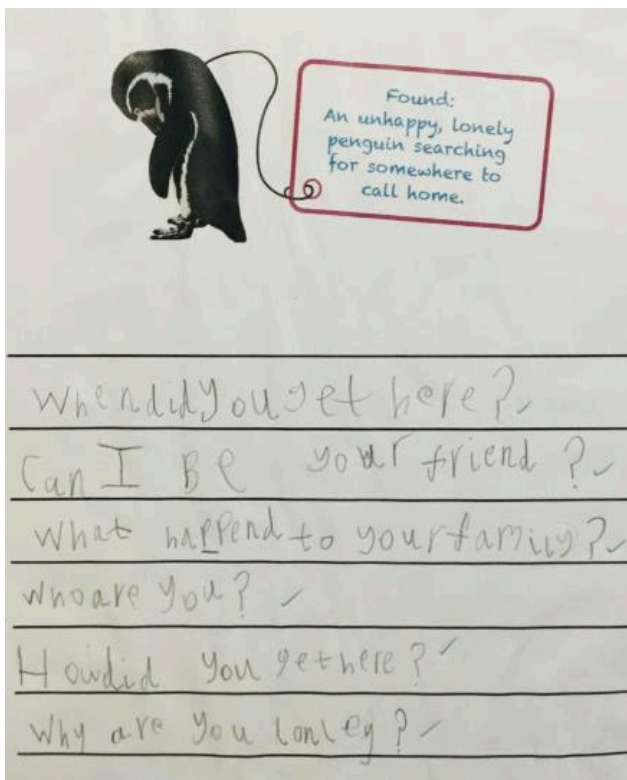 Found:
An unhappy, lonely
penguin searching
for somewhere to
call home.
When did you get here?
Can I Be your friend?
What happend to your family?
who are you?
How did you get here?
Why are you lonley?